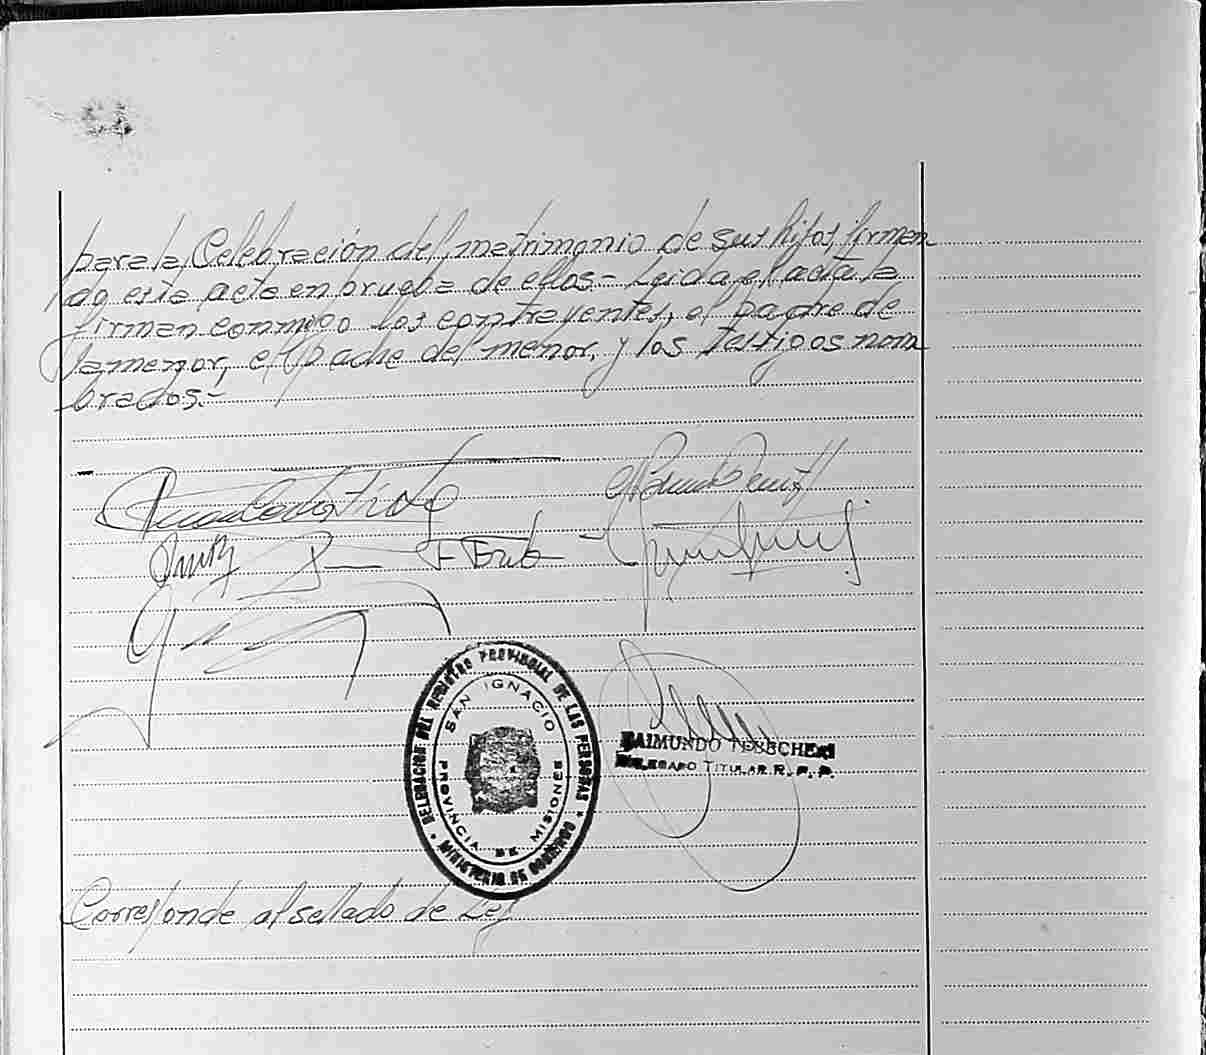 para la Celebración del matrimonio de sus hijos, firman
do este acta en prueba de ellos.- Leida el acta la
firman conmigo los contrayentes, el padre de
la menor, el padre del menor, y los testigos nom
brados.-
DELEGACION DEL REGISTRO PROVINCIAL DE LAS PERSONAS
SAN IGNACIO
PROVINCIA DE MISIONES
MINISTERIO DE GOBIERNO
RAIMUNDO
DELEGADO TITULAR R. P. P.
Corresponde al sellado de Ley